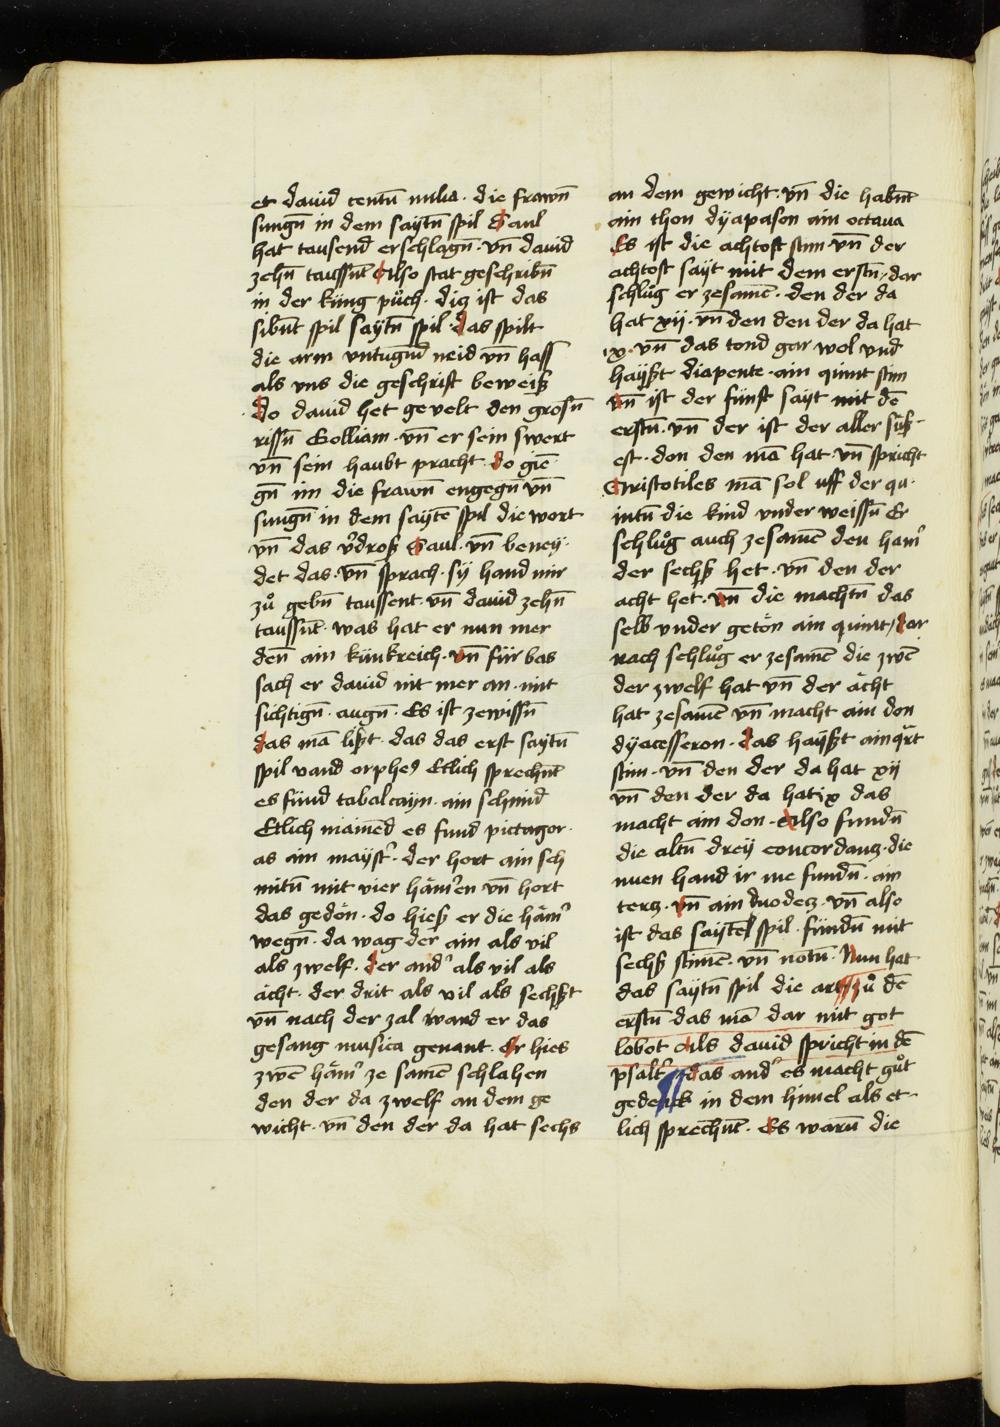 et dauid centū milia · die frawn̄
sungn̄ in dem saytn̄ spil Saul
hat tausend erschlagn̄ · vn̄ dauid
zehn̄ taussn̄t Also stat geschribn̄
in der küng půch · diz ist das
sibn̄t spil saytn̄ spil · das spilt
die arm vntugn̄d neid vn̄ hass
als vns die geschrift beweiß
do dauid het gevelt den grosn̄
rissn̄ Golliam · vn̄ er sein swert
vn̄ sein haubt pracht · do gie
gn̄ im die frawn̄ engegn̄ vn̄
sungn̄ in dem saytē spil die wort
vn̄ das v̓droß Saul · vn̄ beney
det das · vn̄ sprach · sy hand mir
zů gebn̄ taussent · vn̄ dauid zehn̄
taussn̄t · was hat er nun mer
den̄ ain künkreich · vn̄ für bas
sach er dauid nit mer an · mit
sichtign̄ · augn̄ · Es ist zewissn̄
das mā lißt · das das erst saytn̄
spil vand orpheꝰ Etlich sprechn̄t
es fund tabalcayn · ain schmid
Etlich mainēd es fund pictagor
as ain mayst̓ · der hort ain sch
mitn̄ mit vier häm̓en vn̄ hort
das gedön · do hieß er die häm̓
wegn̄ · da wag der ain als vil
als zwelf · der and̓ als vil als
ächt · der drit als vil als sechßt
vn̄ nach der zal ward er das
gesang musica genant · Er hies
zwē häm̓ ze samē schlahen
den der da zwelf an dem ge
wicht · vn̄ den der da hat sechs
an dem gewicht · vn̄ die habn̄t
ain thon dyapason ain octaua
Es ist die achtost stim · vn̄ der
achtost sayt mit dem erstn̄ / dar
schlůg er zesamē · den der da
hat xij · vn̄ den den der da hat
ix · vn̄ das tond gar wol vnd
hayßt diapente · ain quint stim
vn̄ ist der fünft sayt mit dē
erstn̄ · vn̄ der ist der aller süß
est · don den mā hat · vn̄ spricht
Aristotiles mā sol uff der qu
intn̄ die kind vnder weissn̄ Er
schlůg auch zesamē den ham̓
der sechß het · vn̄ den der
acht het · vn̄ die machtn̄ das
selb vnder getön ain quint / dar
nach schlůg er zesamē die zwē
der zwelf hat vn̄ der ächt
hat zesamē vn̄ macht ain don
dyacesseron · das hayßt ain qrt
stim · vn̄ den der da hat xij
vn̄ den der da hat ix das
macht ain don · Also fundn̄
die altn̄ drey concordanz · die
nuen hand ir me fundn̄ · ain
terz · vn̄ ain duodez · vn̄ also
ist das saytē spil · fundn̄ mit
sechß stimē · vn̄ notn̄ · Nun hat
das saytn̄ spil die art zů dē
erstn̄ das mā dar mit got
lobot Als dauid spricht in dē
psalt̓ das and̓ es macht gůt
gedenck in dem himel als et
lich sprechn̄t · Es warn̄ die